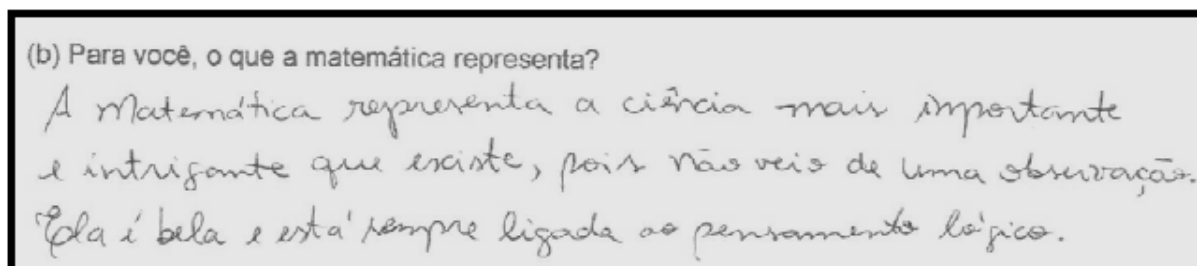 (b) Para você, o que a matemática representa?
A Matemática representa a ciência mais importante
e intrigante que existe, pois não veio de uma observação.
Ela é bela e está sempre ligada ao pensamento lógico.